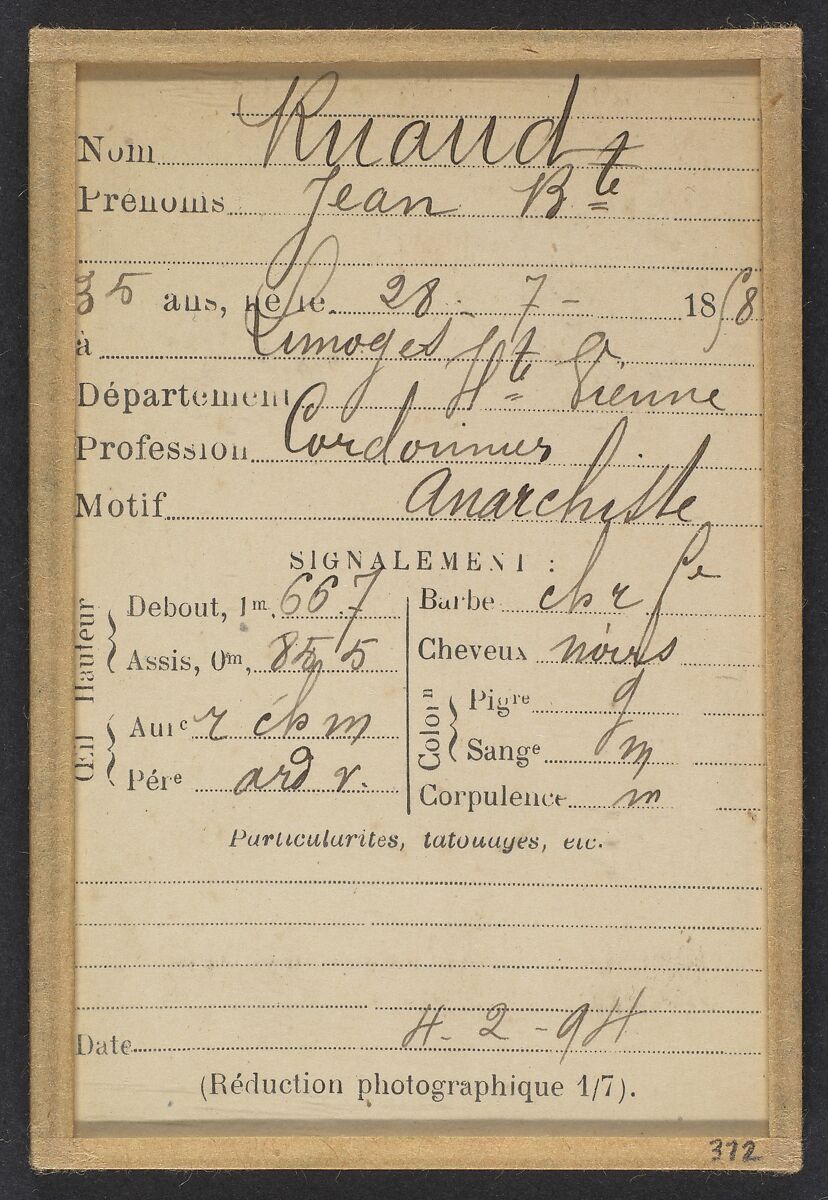 Nom Ruaud
Prénoms Jean Bte
35 ans, né le 28 - 7 - 1858
à Limoges
Département Hte Vienne
Profession Cordonnier
Motif Anarchiste
SIGNALEMENT :
Hauteur
Debout, 1m, 66.7
Assis, 0m, 85,5
Œil
Aurc r ch m
Pére ard v.
Barbe ch r fe
Cheveux noirs
Colorn
Pigre g
Sange m
Corpulence m
Particularités, tatouages, etc.
Date 4 - 2 - 94
(Réduction photographique 1/7).
372